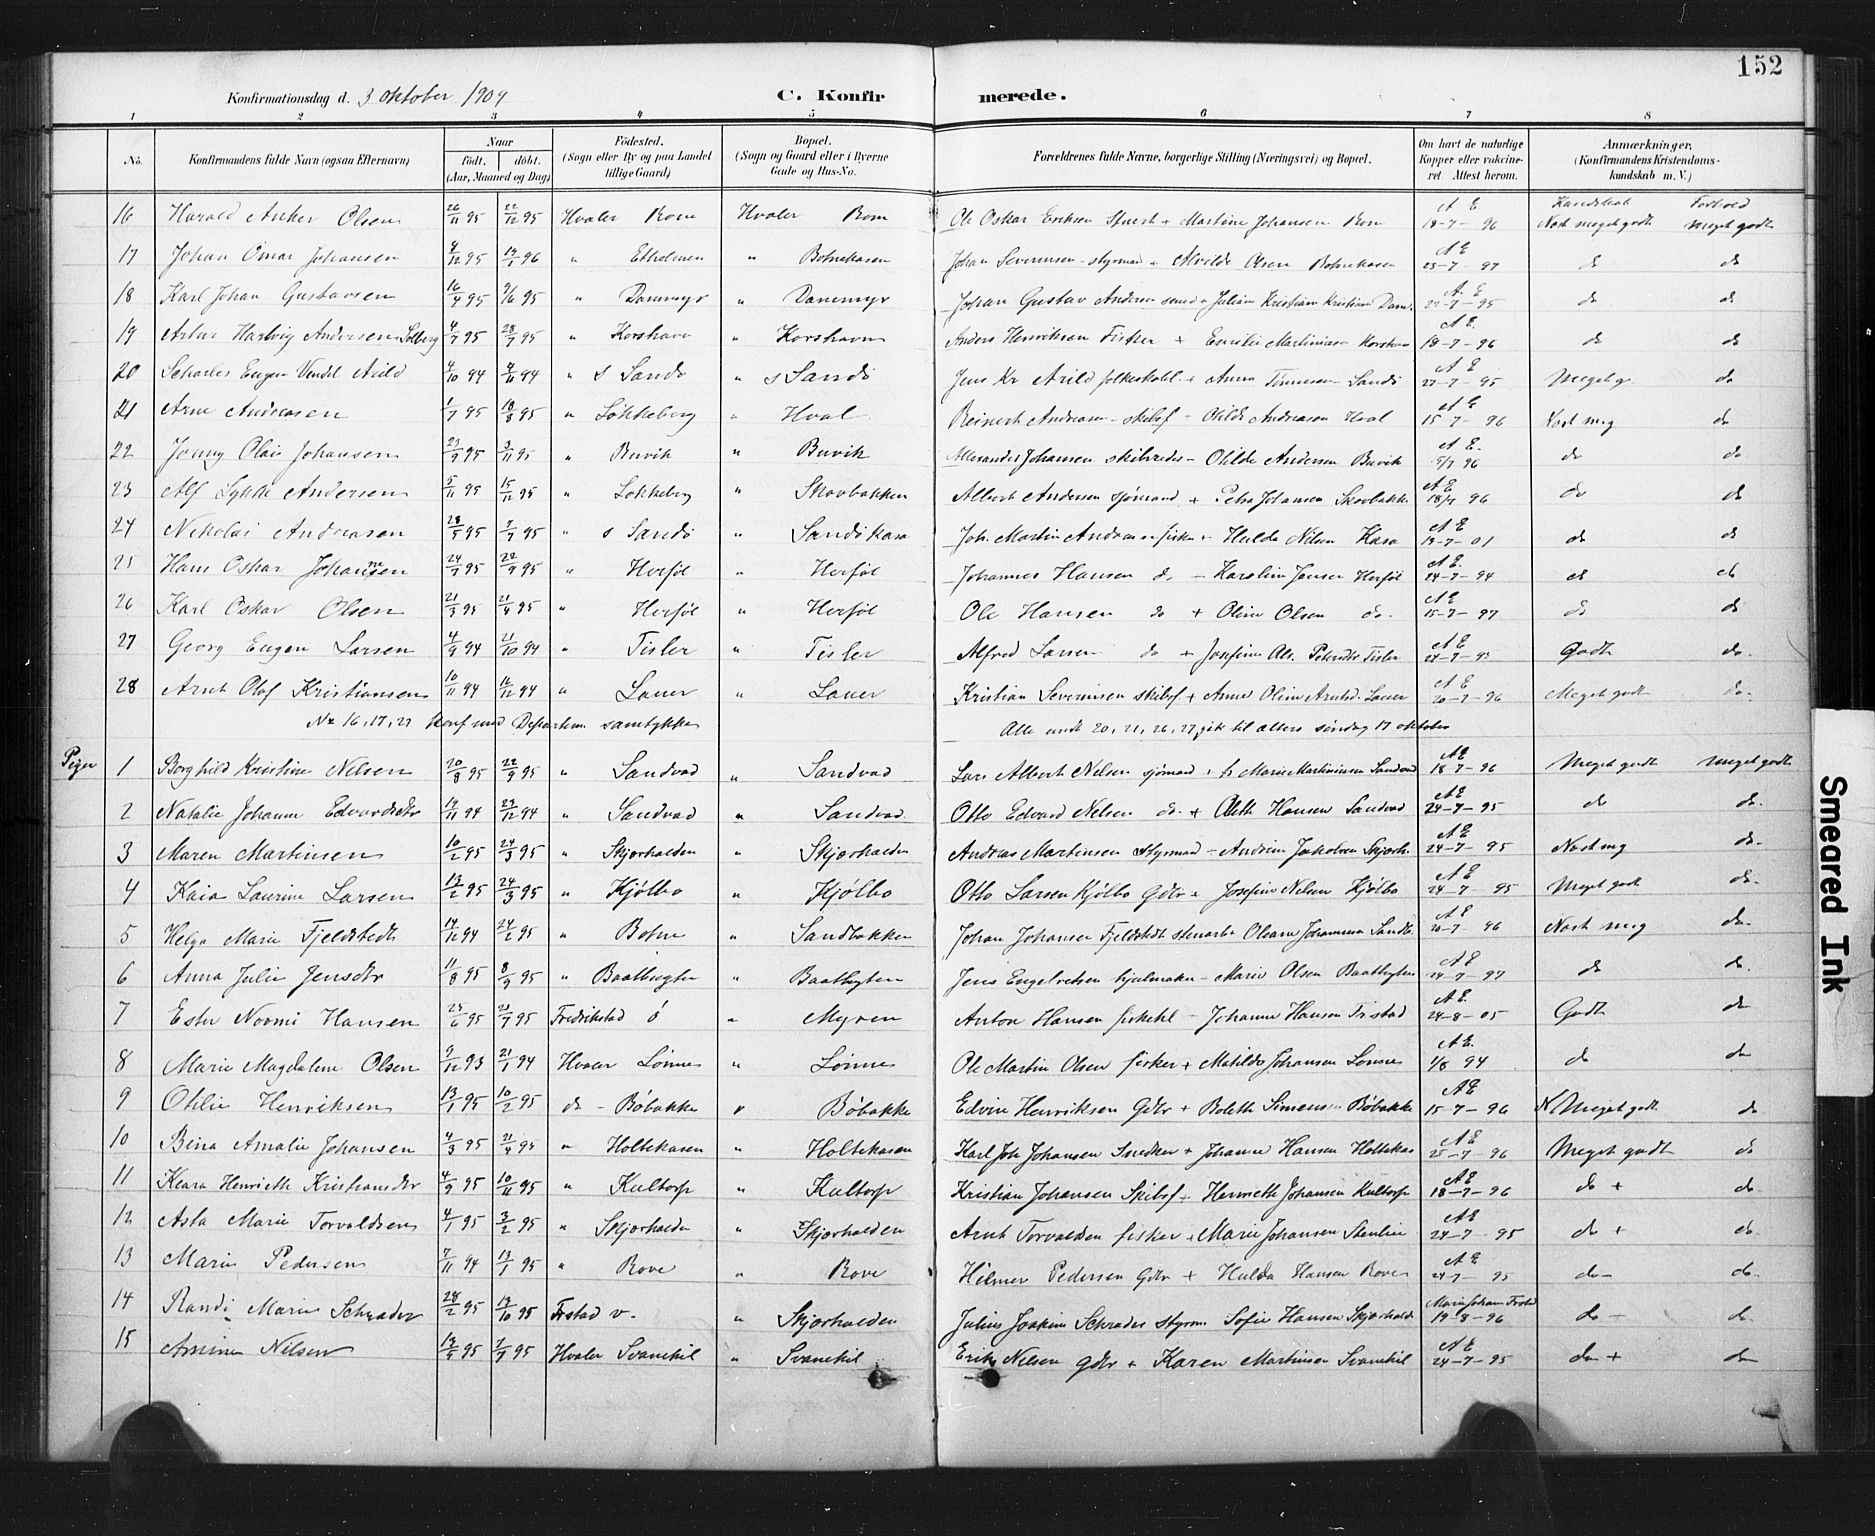 152
Konfirmationsdag d. 3 oktober 1909 C. Konfirmerede.
1 2 3 4 5 6 7 8
No. Konfirmandens fulde Navn (ogsaa Efternavn) Naar født. døbt. (Aar, Maaned og Dag) Fødested. (Sogn eller By og paa Landet tillige Gaard) Bopæl. (Sogn og Gaard eller i Byerne Gade og Hus-No. Forældrenes fulde Navne, borgerlige Stilling (Næringsvei) og Bopæl. Om havt de naturlige Kopper eller vakcineret. Attest herom. Anmærkninger, (Konfirmandens Kristendomskundskab m. V.)
Kundskab Forhold
16 Harald Anker Olsen 26/11 95 22/12 95 Hvaler Rom Hvaler Rom Ole Oskar Eriksen + Martine Johansen Rom AE 18-7-96 Nost meget godt Meget godt
17 Johan Omar Johansen 4/12 95 19/1 96 " Etholmen " Botnekasen Johan Severinsen styrmd + Alvilde Olsen Botnekasen AE 23-7-97 do do
18 Karl Johan Gustavsen 16/4 95 2/6 95 " Dammyr " Dammyr Johan Gustav Andersen + Juliane Kristiane Kristians Dam. AE 27-7-95 do do
19 Artur Hartvig Andersen Solberg 4/7 95 28/7 95 " Korshavn " Korshavn Anders Henriksen Fisker + Emilie Martinsen Korshavn AE 18-7-96 do do
20 Scharles Eugen Vendel Arild 4/10 94 4/11 94 " s Sandø " s Sandø Jens Kr Arild folkeskol. + Anna Tønnesen Sandø AE 27-7-95 Meget g. do
21 Arne Andreasen 1/7 95 18/8 95 " Løkkeberg " Hval Reinert Andreasen skibsf - Otilde Andreasen Hval AE 15-7-96 Nost meg do
22 Jonny Olai Johansen 23/9 95 3/11 95 " Buvik " Buvik Allexander Johansen skibsreder - Otilde Andersen Buvik AE 5/7 96 do do
23 Alf Lykke Andersen 5/11 95 15/12 95 " Løkkeberg " Skovbakken Albert Andersen sjømand + Petra Johansen Skovbakke AE 18/7 96 do do
24 Nikolai Andreasen 28/5 95 7/7 95 " s Sandø " Sandøkasa Joh. Martin Andreasen fisker + Hulda Nilsen Kasa AE 19-7-01 do do
25 Hans Oskar Johannesen 24/7 95 22/9 95 " Herføl " Herføl Johannes Hansen do - Karoline Jensen Herføl AE 24-7-94 do do
26 Karl Oskar Olsen 21/3 95 21/4 95 " Herføl " Herføl Ole Hansen do + Oline Olsen do. AE 15-7-97 do do
27 Georg Eugen Larsen 4/9 94 21/10 94 " Tisler " Tisler Alfred Larsen do + Josefine Als. Tisler AE Godt do.
28 Arnt Olaf Kristiansen 10/11 94 16/12 94 " Lauer " Lauer Kristian Severinsen skibsf + Anne Oline Arntsd. Lauer AE 20-7-96 Meget godt do.
No 16, 17, 23 konf med Departem. samtykke Alle undt 20, 21, 26, 27 gik til alters søndag 17 oktober
Piger 1 Borghild Kristine Nilsen 20/8 95 22/9 95 " Sandvad " Sandvad Lars Albert Nilsen sjømand + Marie Martinsen Sandvad AE 18-7-96 Meget godt Meget godt
2 Natalie Johanne Edvardsdtr 19/11 94 23/12 94 " Sandvad " Sandvad Otto Edvard Nelsen do + Aleth Hansen Sandvad AE 24-7-95 do do.
3 Maren Martinsen 10/2 95 24/3 95 " Skjærhalden " Skjærhalden Andreas Martinsen styrmd - Andrine Jakobsen Skjærh. AE 24-7-95 Nost meg do.
4 Kaia Laurine Larsen 13/2 95 24/3 95 " Kjølbo " Kjølbo Otto Larsen Kjølbo Gdbr + Josefine Nelsen Kjølbo AE 24-7-95 Meget godt do.
5 Helga Marie Fjeldstedt 14/12 94 24/2 95 " Botne " Sandbakken Johan Johansen Fjeldstedt stenarb Oleane Johannesen Sandb. AE 20-7-96 Nost meg do.
6 Anna Julie Jensdtr 11/8 95 8/9 95 " Baatbugten " Baatbugten Jens Engebretsen hjulmaker - Marie Olsen Baatbugten AE 24-7-97 do do.
7 Ester Noomi Hansen 25/6 95 23/7 95 Fredrikstad ø " Myren Anton Hansen fiskehl - Johanne Hansen Frstad AE 24-8-05 Godt do
8 Marie Magdalene Olsen 9/12 93 21/1 94 Hvaler Lønne " Lønne Ole Martin Olsen fisker + Matilde Johansen Lønne AE 1/8 94 do do
9 Otilie Henriksen 13/1 95 10/2 95 do - Bøbakke " Bøbakke Edvin Henriksen Gdbr + Boleth Simensen Bøbakke AE 15-7-96 N Meget godt do
10 Bina Amalie Johansen 4/3 95 21/4 95 " Holtekasen " Holtekasen Karl Joh Johansen Snedker + Johanne Hansen Holtekas AE 25-7-96 Meget godt do
11 Klara Henriette Kristiansdtr 4/9 95 10/11 95 " Kultorp " Kultorp Kristian Johansen Skibsf - Henriette Johansen Kultorp AE 18-7-96 do + do.
12 Asta Marie Torvaldsen 4/1 95 3/2 95 " Skjærhalden " Skjærhalden Arnt Torvaldsen fisker + Marie Johansen Stenlien AE 24-7-95 do + do.
13 Marie Pedersen 7/11 94 13/1 95 " Rove " Rove Hilmer Pedersen Gdbr + Hulda Hansen Rove AE 24-7-95 do - do.
14 Randi Marie Schrader 28/2 95 13/10 95 Frstad v. " Skjærhalden Julius Joakim Schrader styrm Sofie Hansen Skjærhald 19-8-96 do - do.
15 Amine Nilsen 13/5 95 7/7 95 Hvaler Svanekil " Svanekil Erik Nilsen gdbr + Karen Martinsen Svanekil AE 24-7-95 do + do
Smeared Ink